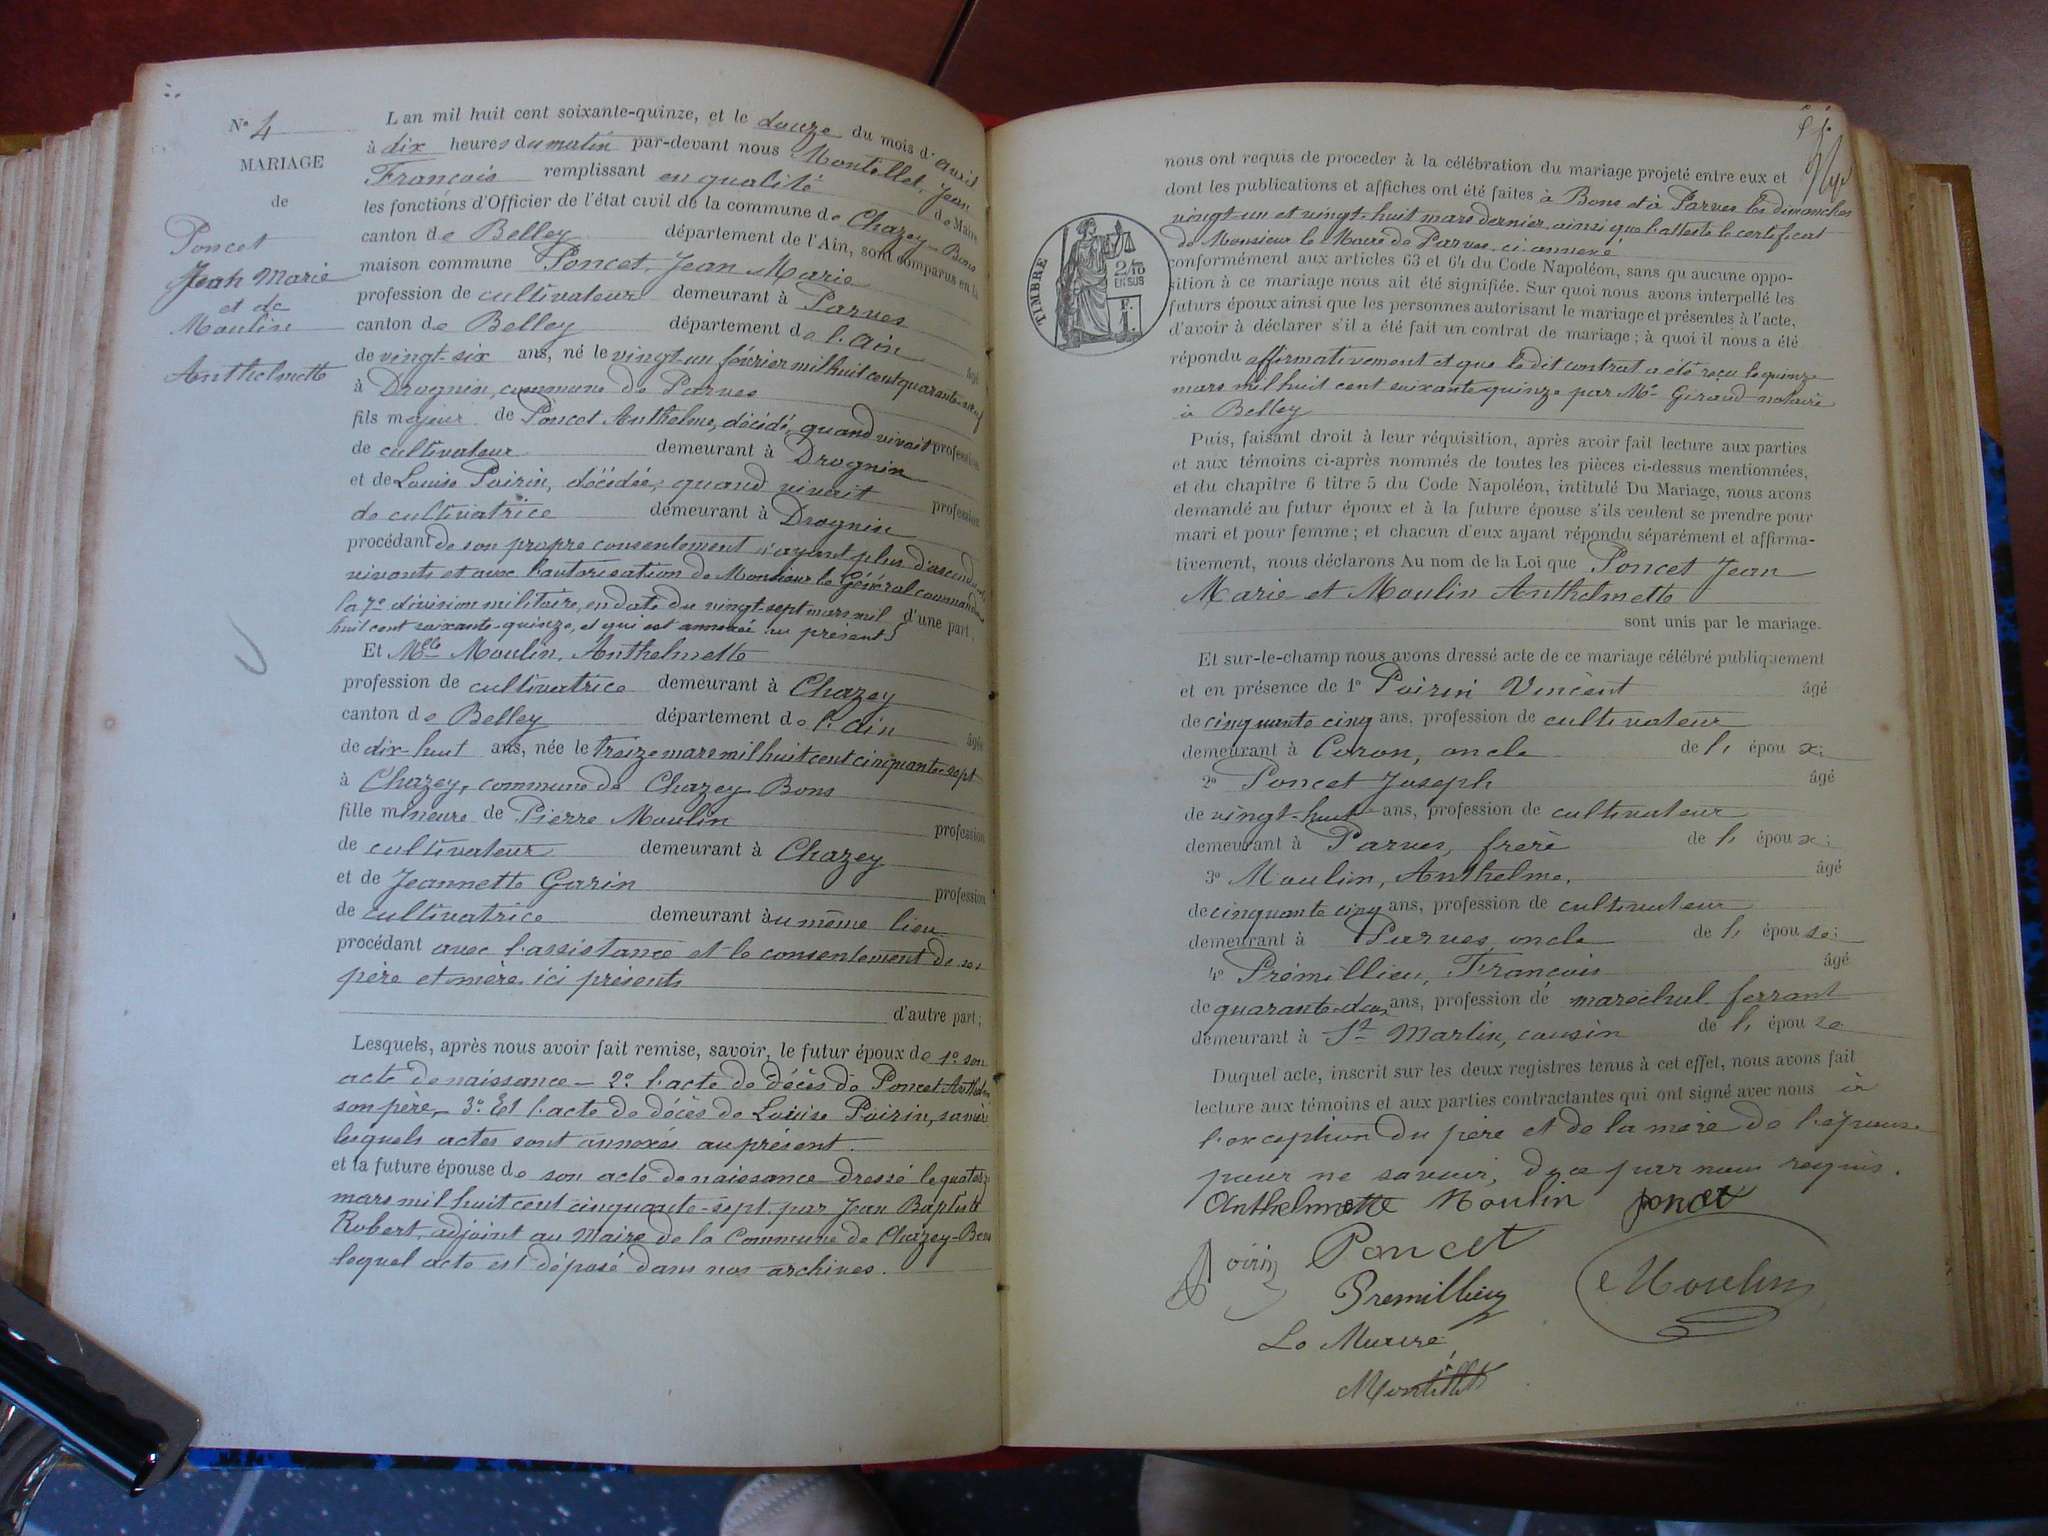 N° 4
MARIAGE
de
Poncet
Jean Marie
et de
Moulin
Anthelmette
L'an mil huit cent soixante-quinze, et le douze du mois d'avril
à dix heures du matin par-devant nous Montillet, Jean
François remplissant en qualité de Maire
les fonctions d'Officier de l'état civil de la commune de Chazey-Bons
canton de Belley département de l'Ain, sont comparus en la
maison commune Poncet, Jean Marie
profession de cultivateur demeurant à Parves
canton de Belley département de l'Ain âgé
de vingt-six ans, né le vingt-un février mil huit cent quarante-neuf
à Drognin, commune de Parves
fils majeur de Poncet Anthelme, décédé, quand vivait profession
de cultivateur demeurant à Drognin
et de Louise Poirin, décédée, quand vivait profession
de cultivatrice demeurant à Drognin
procédant de son propre consentement n'ayant plus d'ascendants
vivants et avec l'autorisation de Monsieur le Général commandant
la 7e division militaire, en date du vingt-sept mars mil d'une part,
huit cent soixante-quinze, et qui est annexée au présent
Et Melle Moulin, Anthelmette
profession de cultivatrice demeurant à Chazey
canton de Belley département de l'Ain âgée
de dix-huit ans, née le treize mars mil huit cent cinquante-sept
à Chazey, commune de Chazey-Bons
fille mineure de Pierre Moulin profession
de cultivateur demeurant à Chazey
et de Jeannette Garin profession
de cultivatrice demeurant au même lieu
procédant avec l'assistance et le consentement de ses
père et mère ici présents
d'autre part;
Lesquels, après nous avoir fait remise, savoir, le futur époux de 1° son
acte de naissance – 2° l'acte de décès de Poncet Anthelme
son père – 3° Et l'acte de décès de Louise Poirin, sa mère
lesquels actes sont annexés au présent.
et la future épouse de son acte de naissance dressé le quatorze
mars mil huit cent cinquante-sept par Jean Baptiste
Robert, adjoint au Maire de la Commune de Chazey-Bons
lequel acte est déposé dans nos archives.
nous ont requis de proceder à la célébration du mariage projeté entre eux et
dont les publications et affiches ont été faites à Bons et à Parves les dimanches
vingt-un et vingt-huit mars dernier, ainsi que l'atteste le certificat
de Monsieur le Maire de Parves, ci annexé
conformément aux articles 63 et 64 du Code Napoléon, sans qu'aucune oppo-
sition à ce mariage nous ait été signifiée. Sur quoi nous avons interpellé les
futurs époux ainsi que les personnes autorisant le mariage et présentes à l'acte,
d'avoir à déclarer s'il a été fait un contrat de mariage; à quoi il nous a été
répondu affirmativement et que le dit contrat a été reçu le quinze
mars mil huit cent soixante quinze par Me Giraud notaire
à Belley
TIMBRE
2/10
EN SUS
F.
1.
Puis, faisant droit à leur réquisition, après avoir fait lecture aux parties
et aux témoins ci-après nommés de toutes les pièces ci-dessus mentionnées,
et du chapitre 6 titre 5 du Code Napoléon, intitulé Du Mariage, nous avons
demandé au futur époux et à la future épouse s'ils veulent se prendre pour
mari et pour femme; et chacun d'eux ayant répondu séparément et affirma-
tivement, nous déclarons Au nom de la Loi que Poncet Jean
Marie et Moulin Anthelmette
sont unis par le mariage.
Et sur-le-champ nous avons dressé acte de ce mariage célébré publiquement
et en présence de 1° Poirin Vincent âgé
de cinquante cinq ans, profession de cultivateur
demeurant à Coron, oncle de l' époux:
2° Poncet Joseph âgé
de vingt-huit ans, profession de cultivateur
demeurant à Parves, frère de l' époux:
3° Moulin, Anthelme, âgé
de cinquante cinq ans, profession de cultivateur
demeurant à Parves, oncle de l' épouse:
4° Prémillieu, François âgé
de quarante-deux ans, profession de maréchal ferrant
demeurant à St Martin, cousin de l' épouse
Duquel acte, inscrit sur les deux registres tenus à cet effet, nous avons fait
lecture aux témoins et aux parties contractantes qui ont signé avec nous à
l'exception du père et de la mère de l'épouse
pour ne savoir, de ce par nous requis.
Anthelmette Moulin poncet
Poirin Poncet
Premillieu Moulin
Le Maire
Montillet